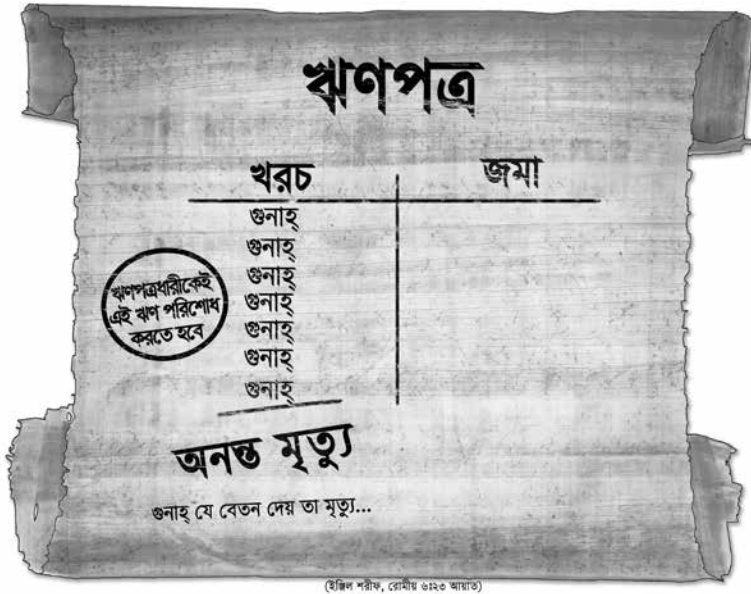 ঋণপত্র
খরচ জমা
গুনাহ্
গুনাহ্
গুনাহ্
গুনাহ্
গুনাহ্
গুনাহ্
গুনাহ্
ঋণপত্রধারীকেই
এই ঋণ পরিশোধ
করতে হবে
অনন্ত মৃত্যু
গুনাহ্ যে বেতন দেয় তা মৃত্যু...
(ইঞ্জিল শরীফ, রোমীয় ৬:২৩ আয়াত)